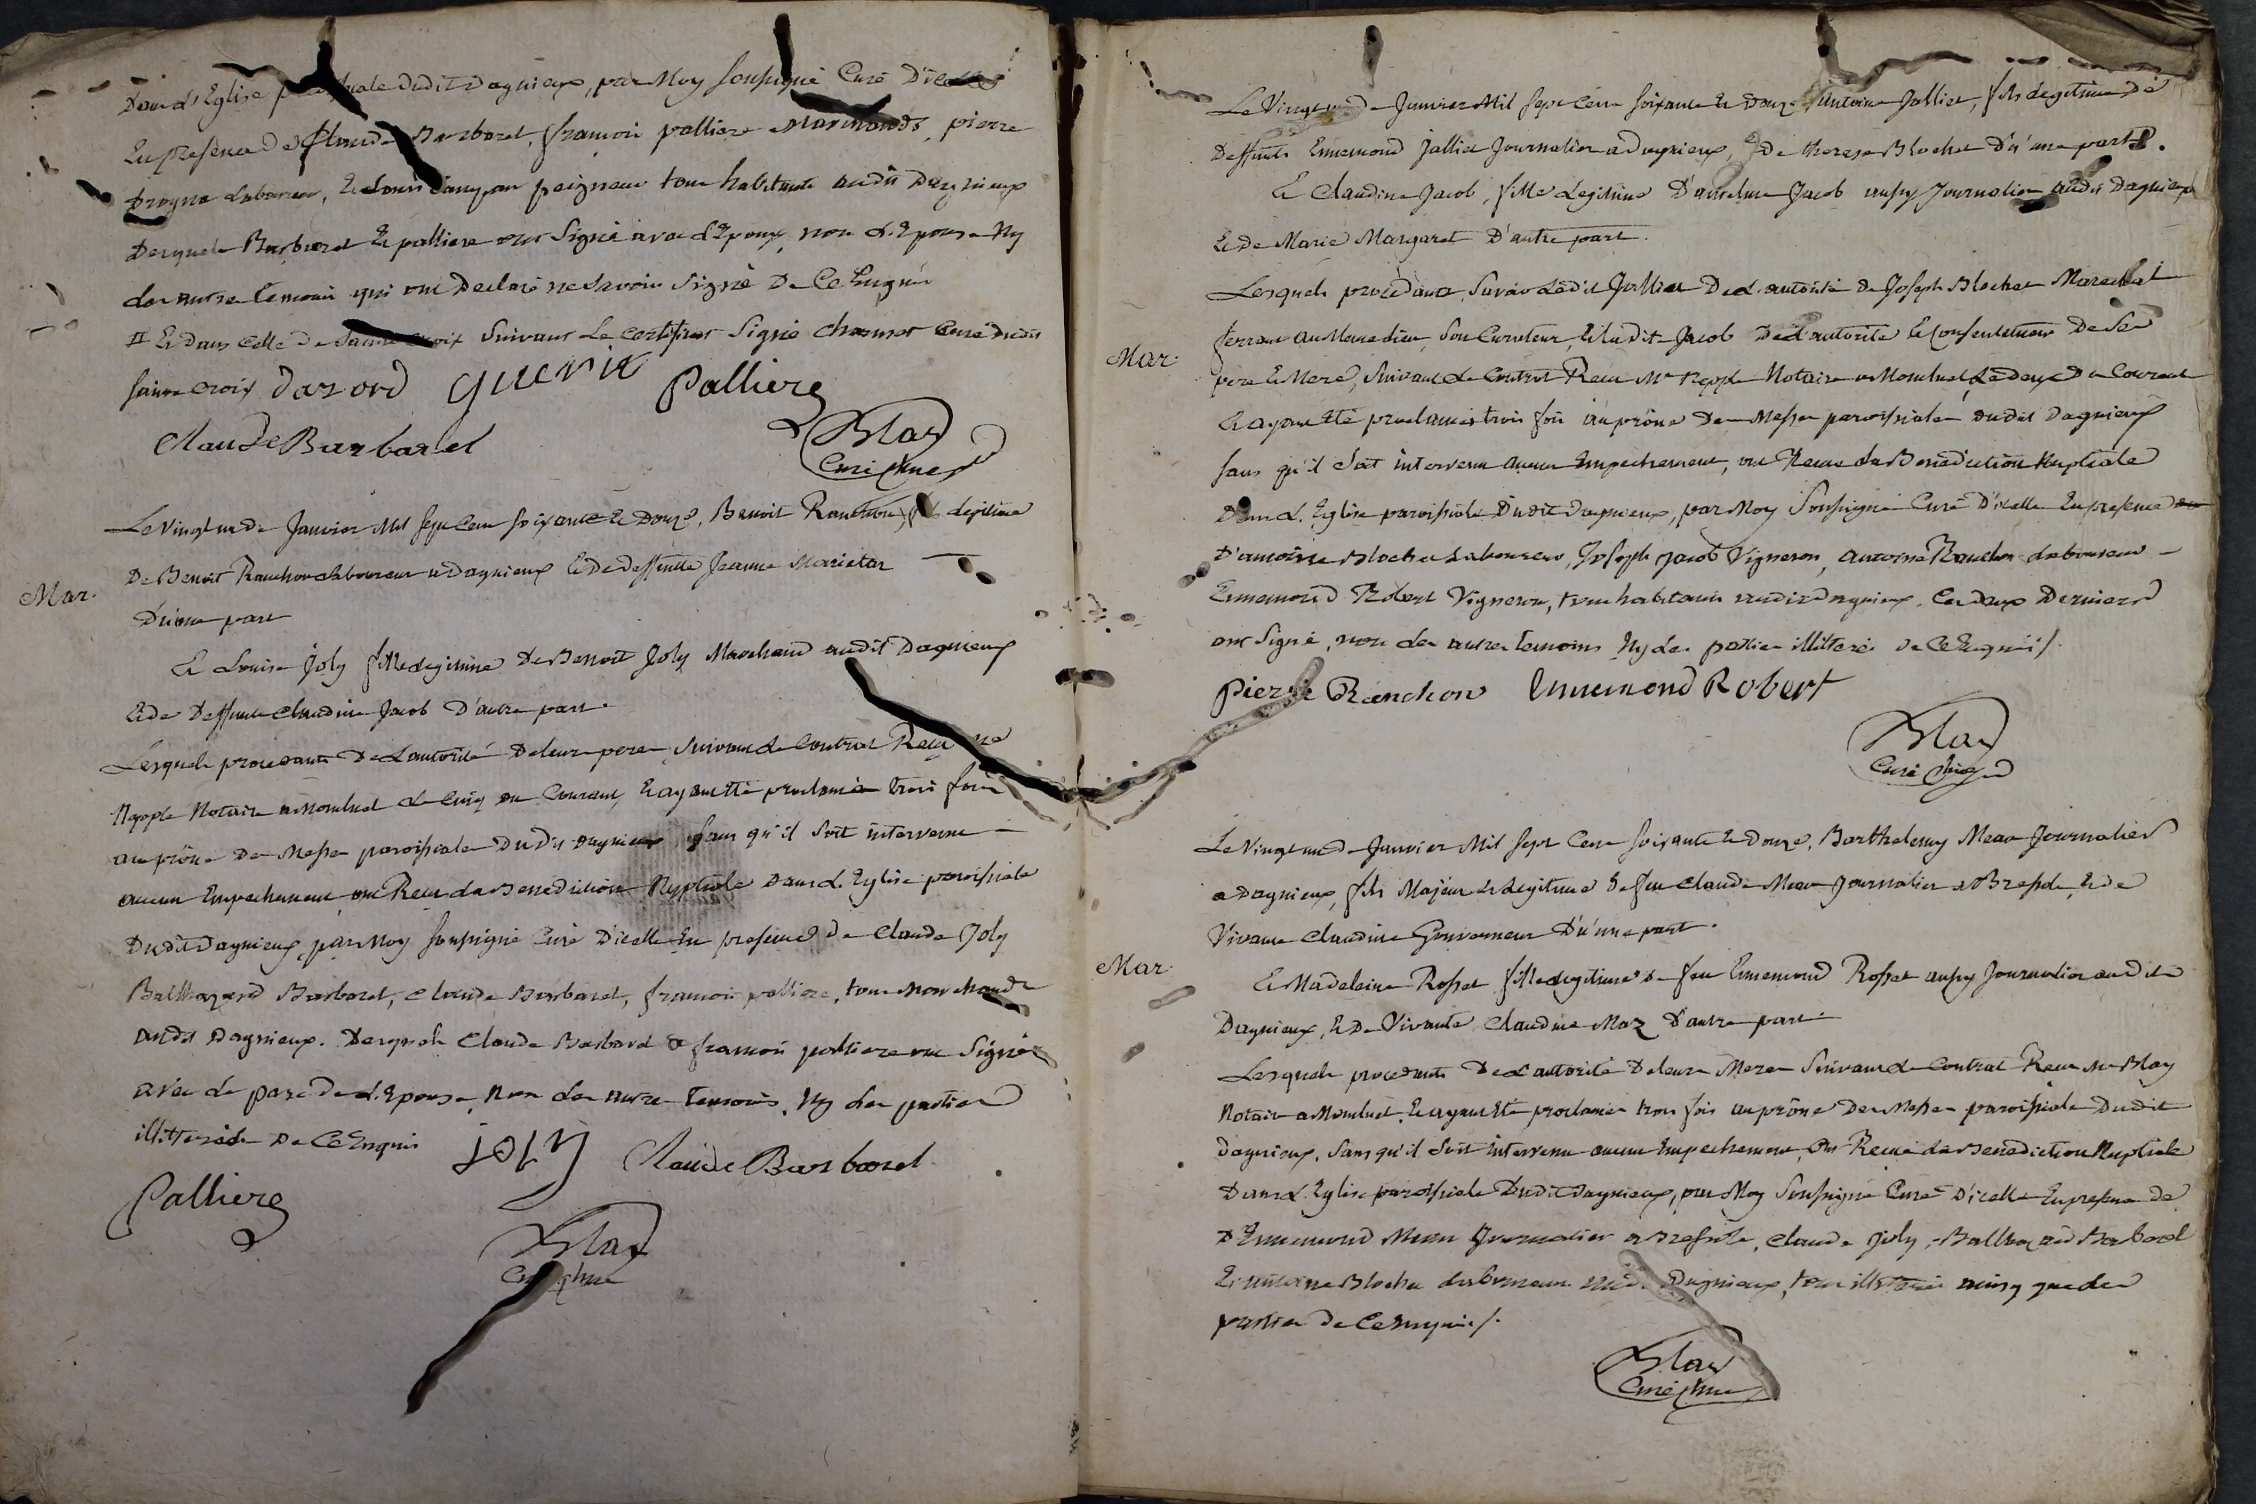 Dans l'Eglise paroissiale dudit Dagnieux, par Moy soussigné Curé D'icelle
En presence de Claude Barbaret, françois palliere Marchands, pierre
laboureur, Et Louis peigneur tous habitants audit Dagnieux
Desquels Barbaret Et palliere ont Signé avec L'Epoux, non L'Epouse Ny
les autres temoins qui ont Declaré ne Savoir Signé De Ce Enquis
# Et dans celle de Sainte Croix Suivant Le Certificat Signé Curé dudit
Sainte Croix darord guerin Palliere
Claude Barbaret Blay
Curé
Le Vingt un de Janvier Mil Sept Cent soixante Et Douze, Benoit Ranchon, fils legitime
Mar.
De Benoit Ranchon laboureur a Dagnieux Et de deffunte Jeanne Marietan
D'une part
Et Louise Joly fille legitime De Benoit Joly Marchand audit Dagnieux
Et de Deffunte Claudine Jacob D'autre part.
Lesquels procedants De L'autorité De leurs peres Suivant le Contrat Recu Me
Nepple Notaire a Montluel le Cinq du Courant, Et ayant été proclamés trois fois
au prône des Messes paroissiales Dudit Dagnieux, Sans qu'il Soit intervenu
aucun Empechement ont Recu la Benediction Nuptiale Dans L'Eglise paroissiale
Dudit Dagnieux, par Moy soussigné Curé D'icelle En presence de Claude Joly
Balthazard Barbaret, Claude Barbaret, françois palliere, tous Marchands
audit Dagnieux. Desquels Claude Barbaret Et françois palliere ont Signé
avec le pere de L'Epouse, Non les autres temoins, Ny les parties
illitterées De Ce Enquis joly Claude Barbaret
Palliere
Blay
Curé
Le Vingt un de Janvier Mil Sept Cent Soixante Et Douze, Antoine Jallier, fils legitime De
Deffunts Ennemond Jallier Journalier a Dagnieux, Et de therese Blochet D'une part.
Et Claudine Jacob, fille Legitime D'anselme Jacob aussy Journalier audit Dagnieux
Et De Marie Margaret D'autre part.
Lesquels procedants, Savoir Ledit Jallier De L'autorité de Joseph Blochet Marechal
Mar.
ferrant au, Son Curateur, Et ladite Jacob De L'autorité Et Consentement De Ses
pere Et Mere, Suivant le Contrat Recu Me Nepple Notaire a Montluel, Le Douze du Courant
Et ayant été proclamés trois fois au prône Des Messes paroissiales dudit Dagnieux
Sans qu'il Soit intervenu aucun Empechement, ont Recu la Benediction Nuptiale
Dans L'Eglise paroissiale Dudit Dagnieux, par Moy Soussigné Curé D'icelle En presence
D'antoine Blochet Laboureur, Joseph Jacob Vigneron, Ranchon laboureur
Ennemond Robert Vigneron, tous habitants audit Dagnieux. Les deux Derniers
ont Signé, non les autres temoins Ny les parties illitterés de Ce Enquis /.
Pierre Ranchon Ennemond Robert
Blay
Curé
Le Vingt un de Janvier Mil Sept Cent Soixante Et Douze, Barthelemy Meau Journalier
a Dagnieux, fils Majeur Et Legitime De feu Claude Meau Journalier a Bressolle, Et de
Vivante Claudine Gouverneur D'une part.
Mar.
Et Madeleine Rosset fille Legitime De feu Ennemond Rosset aussy Journalier audit
Dagnieux, Et De Vivante Claudine Maz D'autre part.
Lesquels procedants De L'autorité De leurs Meres Suivant le Contrat Recu Me Blay
Notaire a Montluel, Et ayant été proclamés trois fois au prône Des Messes paroissiales Dudit
Dagnieux, Sans qu'il Soit intervenu aucun Empechement, Ont Recu la Benediction Nuptiale
Dans L'Eglise paroissiale Dudit Dagnieux, par Moy Soussigné Curé D'icelle En presence De
D'Ennemond Meau Journalier a Bressolle, Claude Joly, Balthazard Barbaret
Et antoine Blochet laboureur audit Dagnieux, tous illitterés ainsy que les
parties de Ce Enquis /.
Blay
Curé